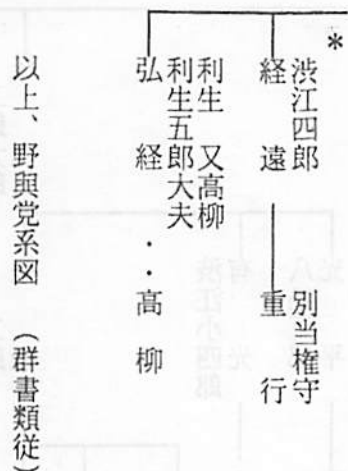 *
渋江四郎 別当権守
経遠 重行
利生 又高柳
利生五郎大夫
弘経・・高柳
以上、野與党系図 (群書類従)